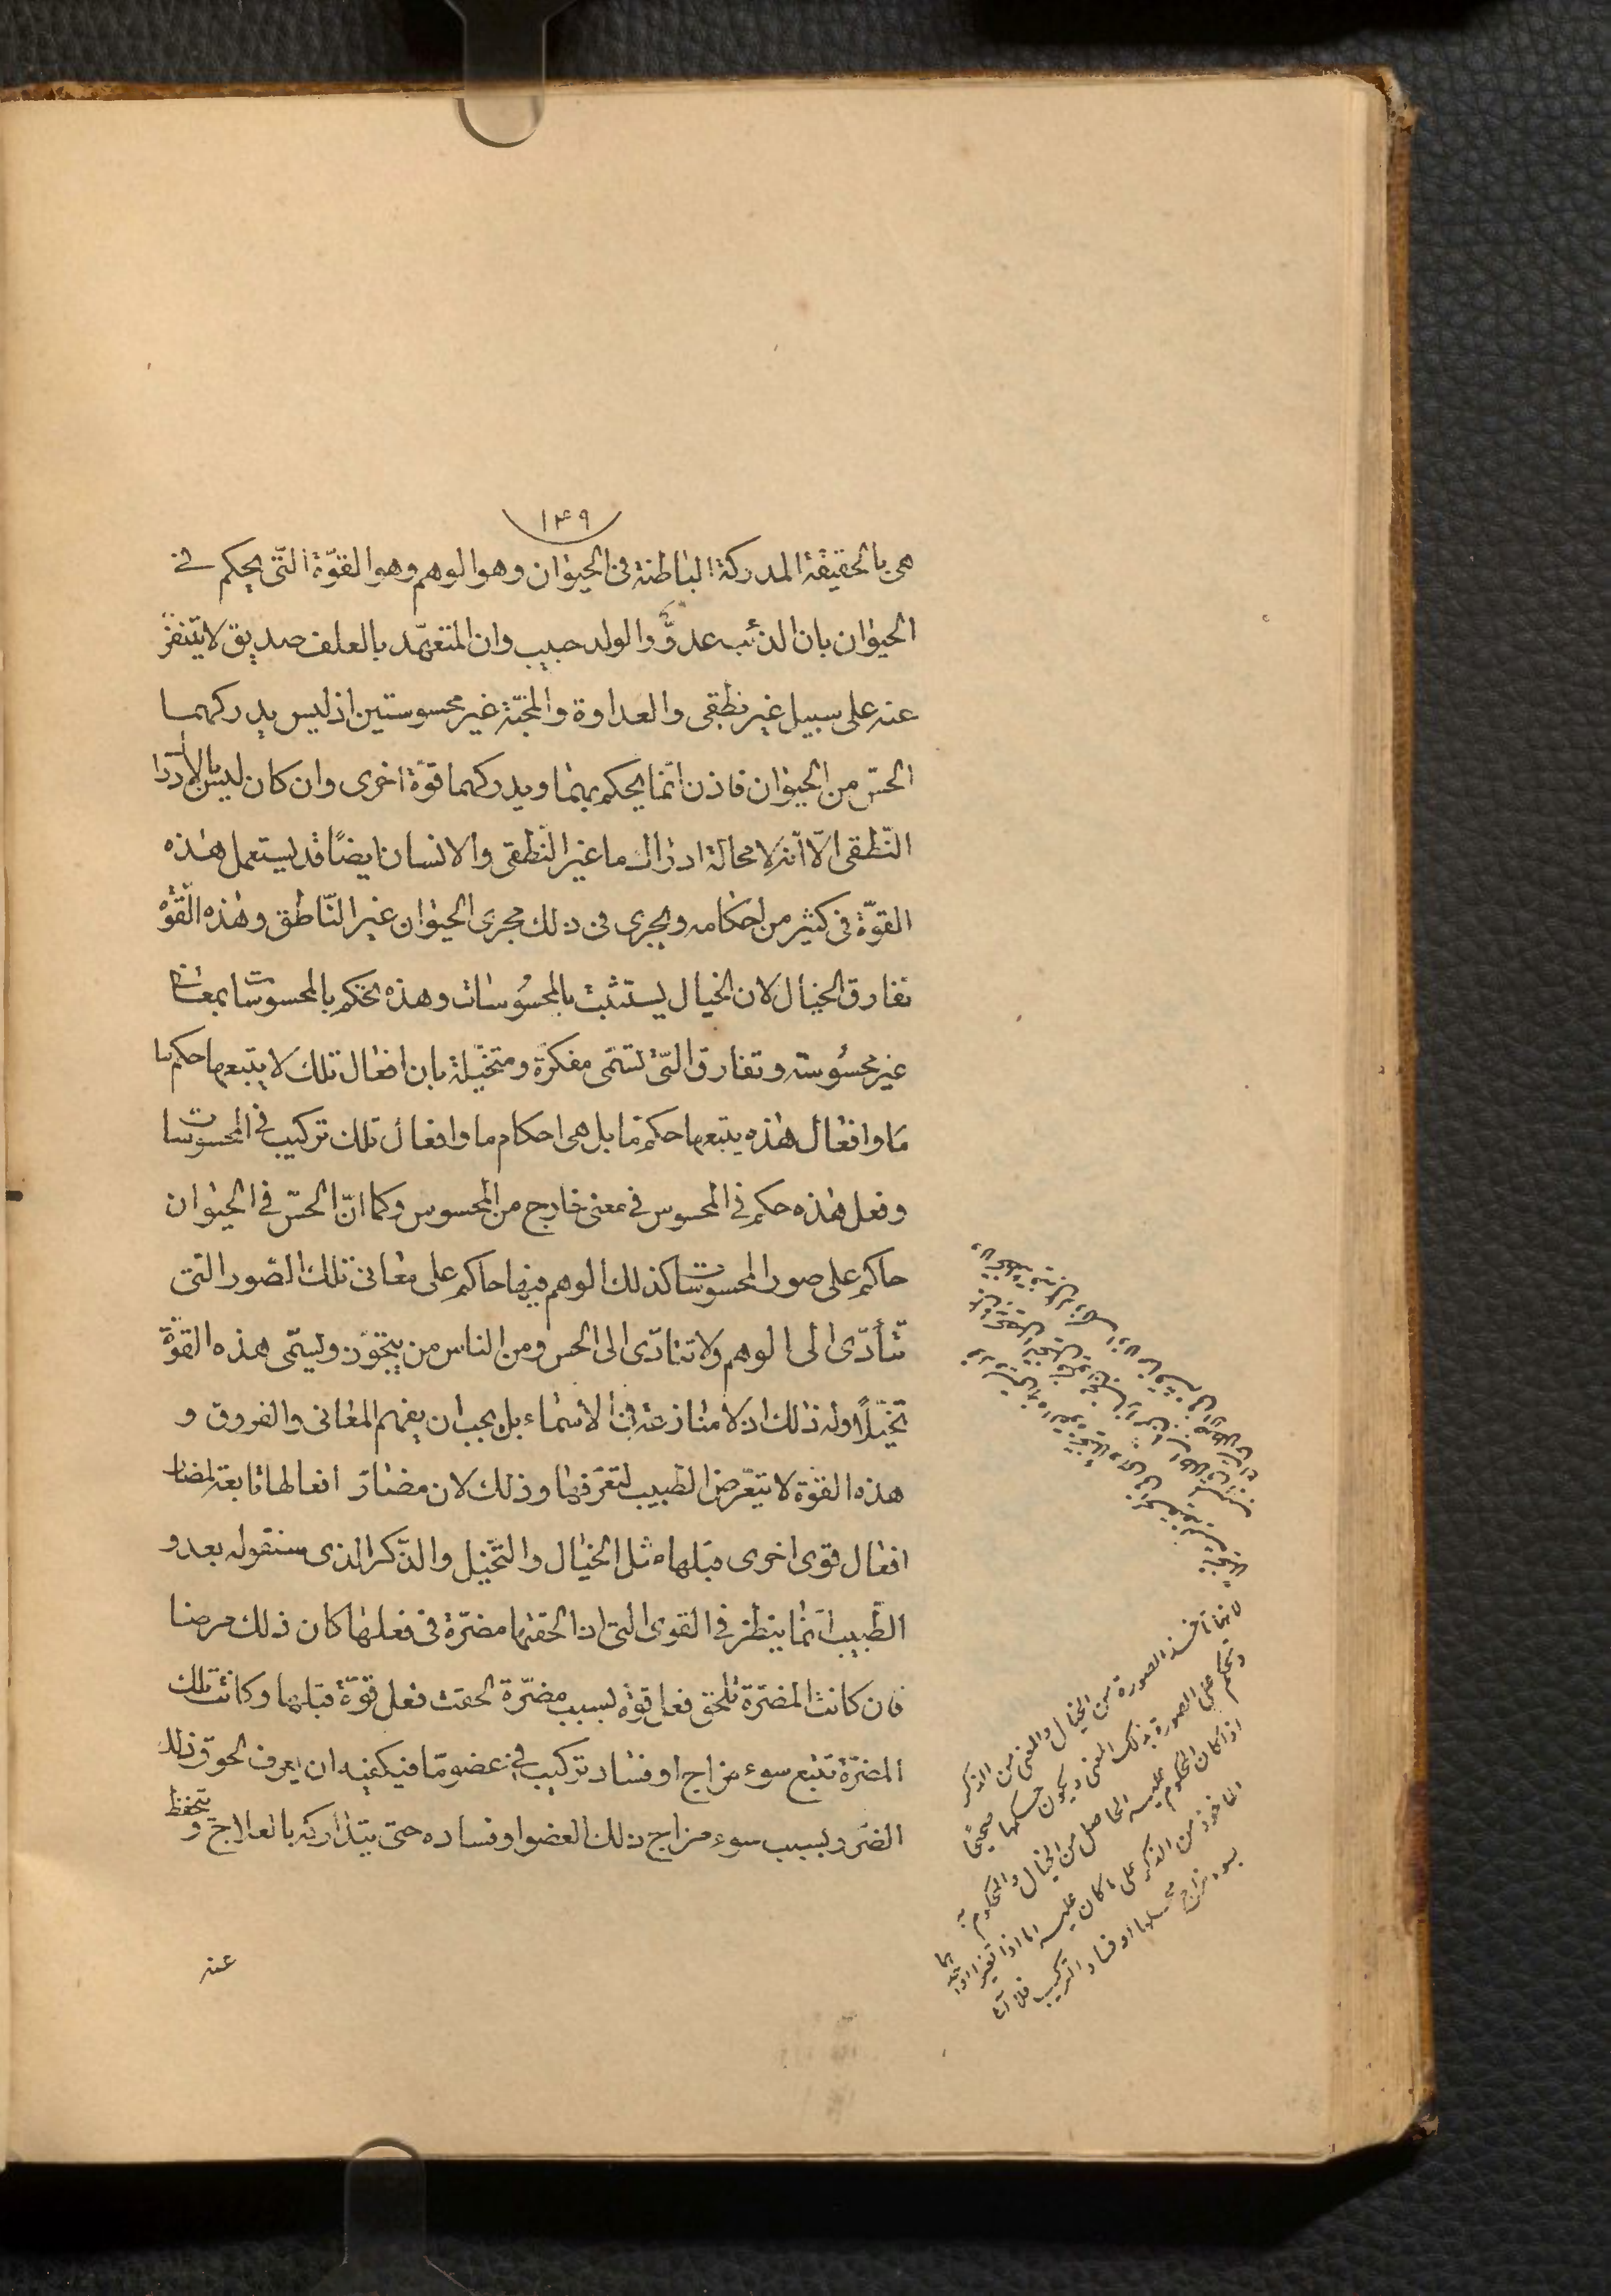 ١٤٩
هى بالحقيقة المدركة الباطنة فى الحيوان وهو الوهم وهو القوّة التّى يحكم فى
الحيوان بان الذئب عدوٌّ والولد حبيب وان المتعهّد بالعلف صديق لا يتنفّر
عنه على سبيل غير نطقى والعداوة والمحبّة غير محسوستين اذ ليس يدركهما
الحسّ من الحيوان فاذن انّما يحكم بهما ويدركهما قوّة اخرى وان كان ليس بالادراك
النّطقى الّا انّه لا محالة ادراك ما غير النّطقى والانسان ايضًا قد يستعمل هذه
القوّة فى كثير من احكامه ويجرى فى ذلك مجرى الحيوان غير النّاطق وهذه القوّة
تفارق الخيال لان الخيال يستثبت بالمحسُوسات وهذه تحكم بالمحسوسات بمعان
غير محسُوسة وتفارق التّى تسمّى مفكرّة ومتخيّلة بان افعال تلك لا يتبعها حكم ما
مَا وافعال هذه يتبعها حكم مّا بل هى احكام ما وافعال تلك تركيب فى المحسوسات
وفعل هذه حكم فى المحسوس فى معنى خارج من المحسوس وكما انّ الحسّ فى الحيوان
حاكم على صور المحسوسات كذلك الوهم فيها حاكم على معانى تلك الصّور التى
تتأدّى الى الوهم ولا تتادّى الى الحس ومن الناس من يتجوّز ويسمّى هذه القوّة
تخيّلًا وله ذلك اذ لا منازعة فى الاسْماء بل يجب ان يفهم المعانى والفروق و
هذه القوّة لا يتعّرض الطّبيب لتعّرفها وذلك لان مضارّ افعالها تابعة لمضار
افعال قوى اخرى قبلها مثل الخيال والتّخيل والذّكر الذى سنقوله بعد و
الطّبيب انّما ينظر فى القوى التى اذا لحقها مضرّة فى فعلها كان ذلك مرضا
فان كانت المضرّة تلحق فعل قوة بسبب مضرّة لحقت فعل قوّة قبلها وكانت تلك
المضرّة تتبع سوء مزاج او فساد تركيب فى عضو مّا فيكفيه ان يعرف لحوق ذلك
الضّرر بسبب سوء مزاج ذلك العضو او فساده حتى يتداركه بالعلاج و يتحفظ
عنه
لانها تأخذ الصورة من الخيال والمعنى من الذكر
وتحكم على الصورة بذلك المعنى ويكون حكمها صحيحًا
اذا كان المحكوم عليه الحاصل من الخيال والمحكوم به
المأخوذ من الذكر على ما كان عليه اما اذا تغير
بسوء مزاج محلهما او فساد التركيب فلا